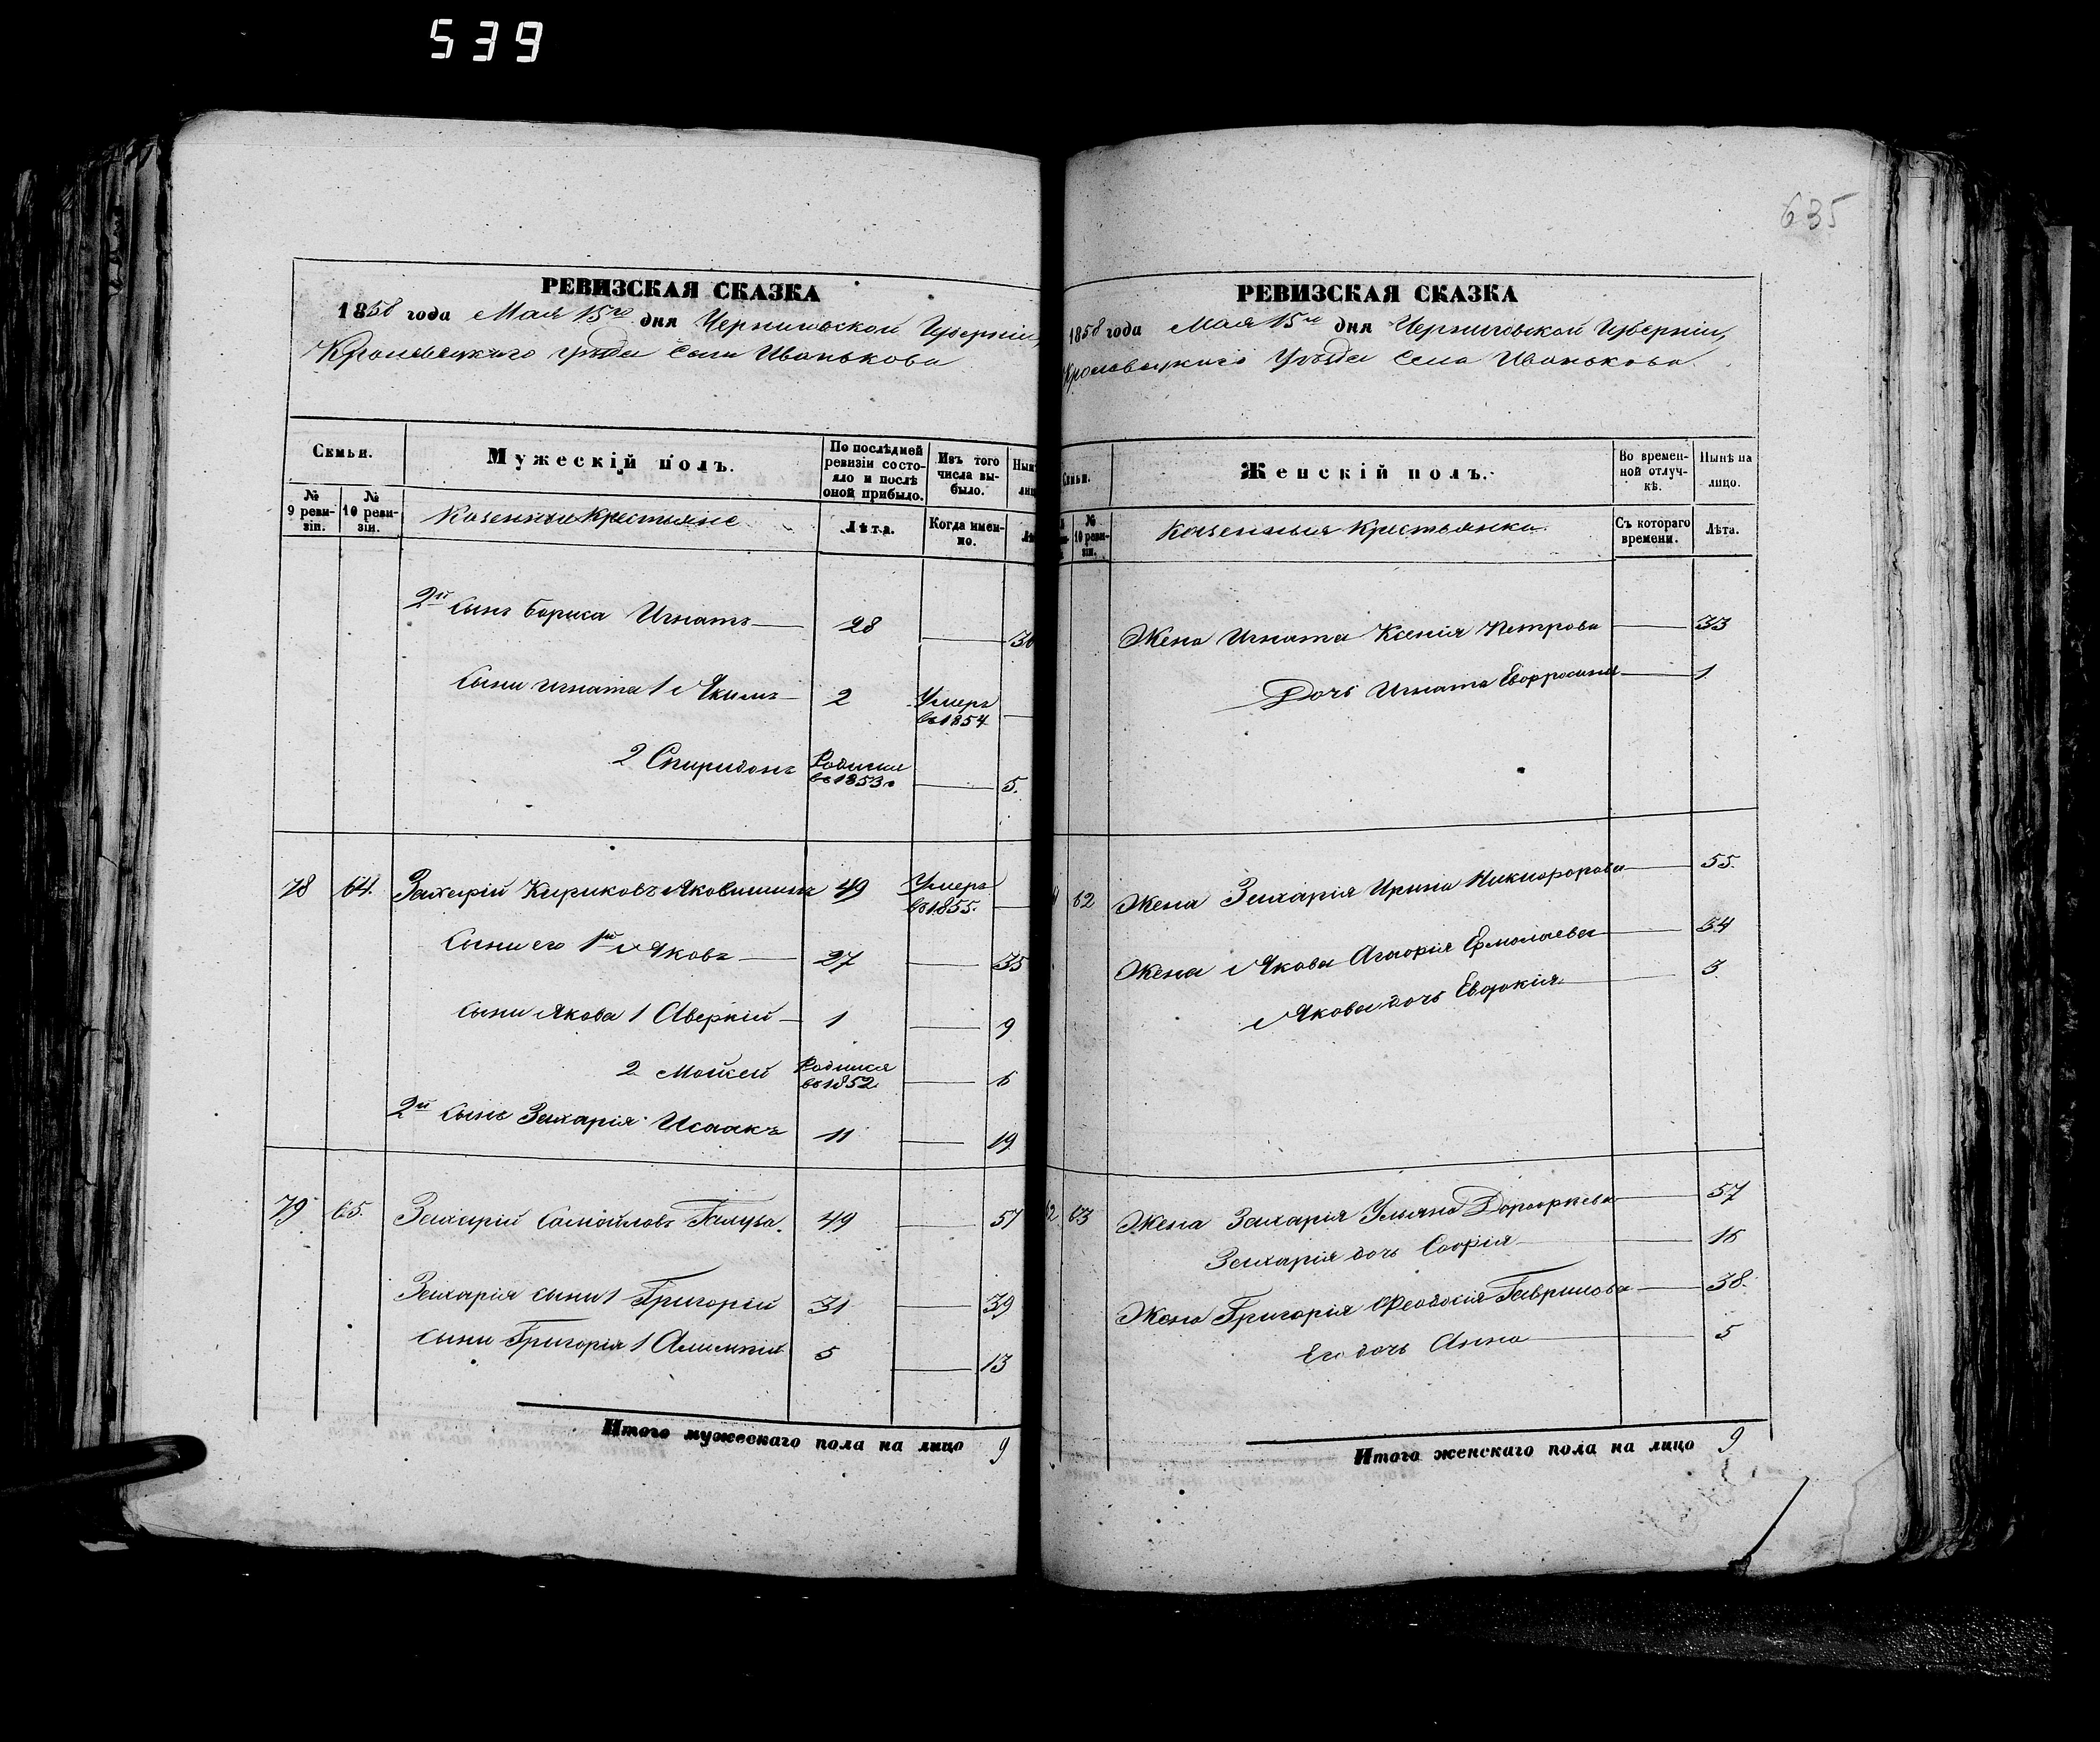 539
РЕВИЗСКАЯ СКАЗКА
1858 года Мая 15го дня Черниговской Губерніи,
Кролевецкаго уѣзда села Иванькова
Семьи.
Мужескій полъ.
По послѣдней ревизіи состояло и послѣ оной прибыло.
Изъ того числа выбыло.
№ 9 ревизіи.
№ 10 ревизіи.
Казенные Крестьяне
Лѣта.
Когда именно.
2й сынъ Бориса Игнатъ 28
сыны Игната 1 Якимъ 2 Умеръ въ 1854
2 Спиридонъ Родился въ 1853 5.
78 64. Захарій Кириковъ 49 Умеръ въ 1855.
сыны его 1й Яковъ 27 35
сыны Якова 1 Аверкій 1 9
2 Мойсей Родился въ 1852 6
2й сынъ Захарія Исаакъ 11 19
79 65. Захарій Самойловъ 49 57
Захарія сыны 1 Григорій 31 39
сыны Григорія 1 5 13
Итого мужескаго пола на лицо 9
635
РЕВИЗСКАЯ СКАЗКА
1858 года Мая 15го дня Черниговской Губерніи,
Кролевецкаго Уѣзда села Иванькова.
Женскій полъ.
Во временной отлучкѣ.
Нынѣ на лицо.
№ 10 ревизіи.
Казенныя Крестьянки.
Съ котораго времени.
Лѣта.
Жена Игната Ксенія Петрова 33
Дочь Игната Евфросинія 1
62 Жена Захарія Ирина Никифорова 55.
Жена Якова Агафія Ермолаева 34
Якова дочь Евдокія 3
63 Жена Захарія Ульяна Дорофіева 57
Захарія дочь Софія 16
Жена Григорія Феодосія Гаврилова 38.
Его дочь Анна 5
Итого женскаго пола на лицо 9